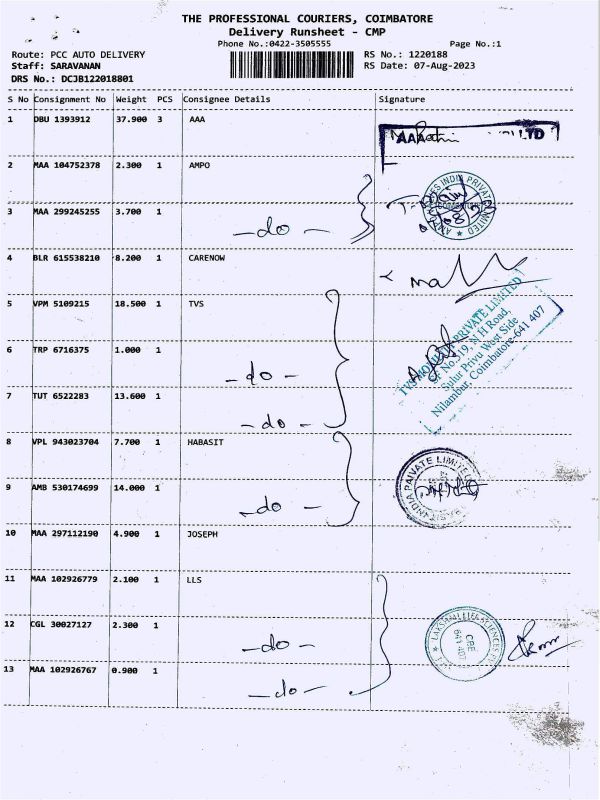 THE PROFESSIONAL COURIERS, COIMBATORE
Delivery Runsheet - CMP
Phone No.:0422-3505555 Page No.:1
Route: PCC AUTO DELIVERY RS No.: 1220188
Staff: SARAVANAN RS Date: 07-Aug-2023
DRS No.: DCJB122018801
S No Consignment No Weight PCS Consignee Details Signature
1 DBU 1393912 37.900 3 AAA
AAA LTD
2 MAA 104752378 2.300 1 AMPO
3 MAA 299245255 3.700 1
- do -
4 BLR 615538210 8.200 1 CARENOW
5 VPM 5109215 18.500 1 TVS
TVS MOBILITY PRIVATE LIMITED
SF No.319, N H Road,
Sulur Privu West Side
Nilambur, Coimbatore-641 407
6 TRP 6716375 1.000 1
- do -
7 TUT 6522283 13.600 1
- do -
8 VPL 943023704 7.700 1 HABASIT
PRIVATE LIMITED
9 AMB 530174699 14.000 1
- do -
10 MAA 297112190 4.900 1 JOSEPH
11 MAA 102926779 2.100 1 LLS
12 CGL 30027127 2.300 1
- do -
CBE
641 407
13 MAA 102926767 0.900 1
- do -